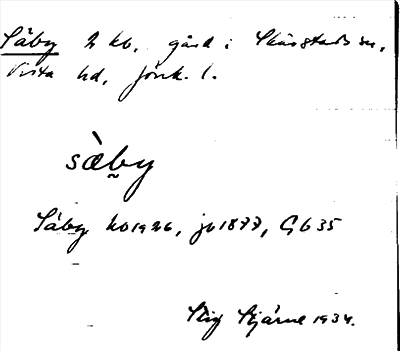 Säby 2 kb, gård i Skärstads sn,
Vista hd, Jönk. l.
sæ̀by
Säby ko1926, jb1877, Gb35
Stig Stjärne 1934.